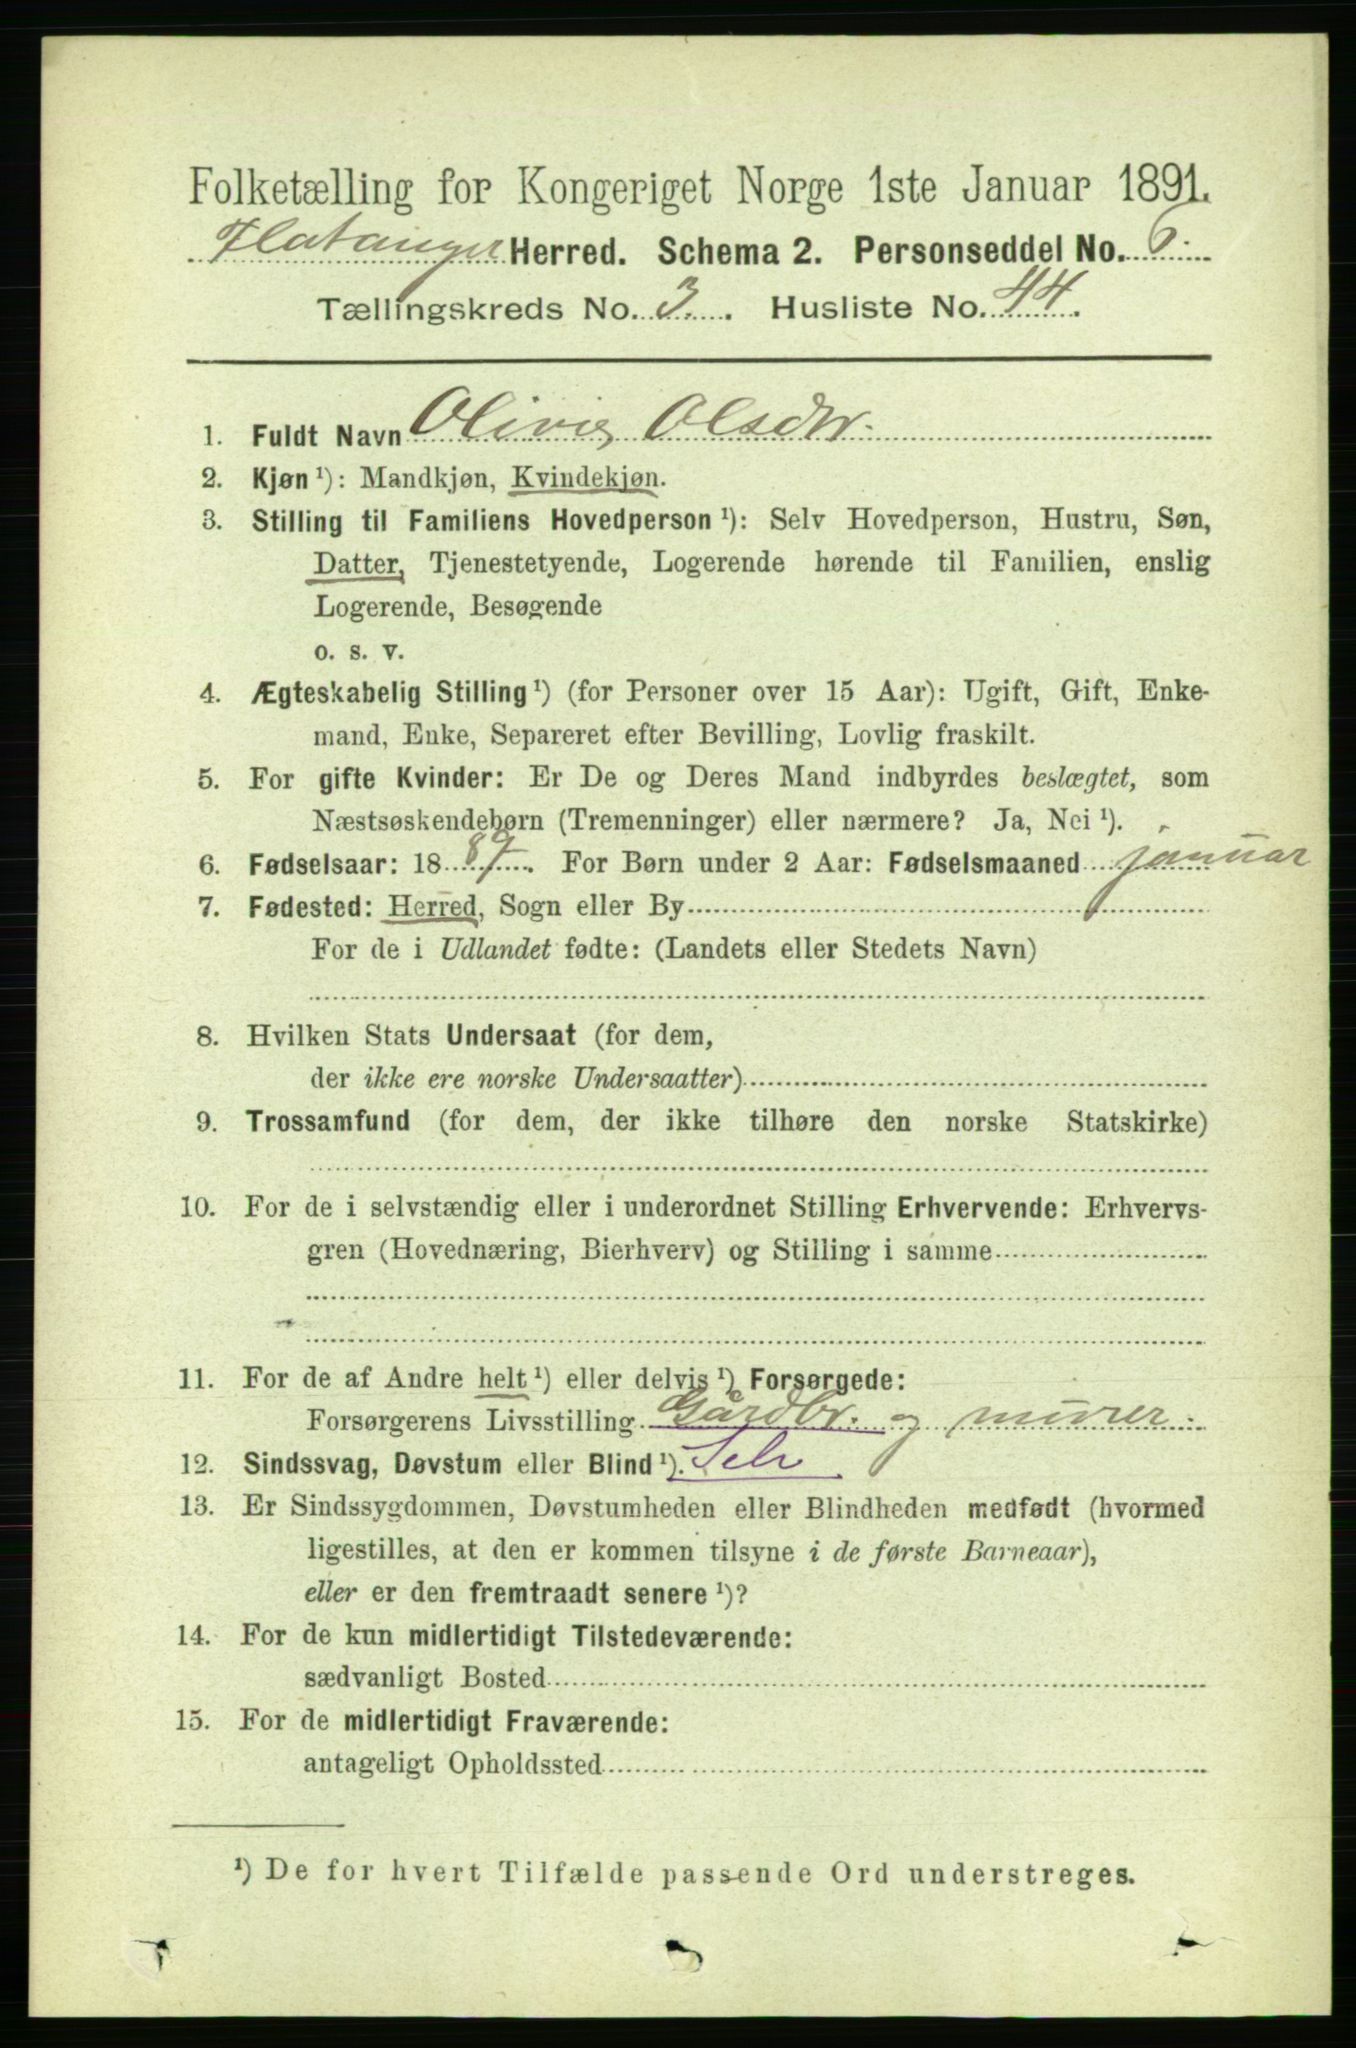 Folketælling for Kongeriget Norge 1ste Januar 1891.
Flatanger Herred. Schema 2. Personseddel No. 6.
Tællingskreds No. 3. Husliste No. 44.
1. Fuldt Navn Olivie Olsdtr.
2. Kjøn ¹): Mandkjøn, Kvindekjøn.
3. Stilling til Familiens Hovedperson ¹): Selv Hovedperson, Hustru, Søn,
Datter, Tjenestetyende, Logerende hørende til Familien, enslig
Logerende, Besøgende
o. s. v.
4. Ægteskabelig Stilling ¹) (for Personer over 15 Aar): Ugift, Gift, Enke-
mand, Enke, Separeret efter Bevilling, Lovlig fraskilt.
5. For gifte Kvinder: Er De og Deres Mand indbyrdes beslægtet, som
Næstsøskendebørn (Tremenninger) eller nærmere? Ja, Nei ¹).
6. Fødselsaar: 1887. For Børn under 2 Aar: Fødselsmaaned januar
7. Fødested: Herred, Sogn eller By
For de i Udlandet fødte: (Landets eller Stedets Navn)
8. Hvilken Stats Undersaat (for dem,
der ikke ere norske Undersaatter)
9. Trossamfund (for dem, der ikke tilhøre den norske Statskirke)
10. For de i selvstændig eller i underordnet Stilling Erhvervende: Erhvervs-
gren (Hovednæring, Bierhverv) og Stilling i samme
11. For de af Andre helt ¹) eller delvis ¹) Forsørgede:
Forsørgerens Livsstilling Gårdbr. og murer.
12. Sindssvag, Døvstum eller Blind ¹). Selv
13. Er Sindssygdommen, Døvstumheden eller Blindheden medfødt (hvormed
ligestilles, at den er kommen tilsyne i de første Barneaar),
eller er den fremtraadt senere ¹)?
14. For de kun midlertidigt Tilstedeværende:
sædvanligt Bosted
15. For de midlertidigt Fraværende:
antageligt Opholdssted
¹) De for hvert Tilfælde passende Ord understreges.